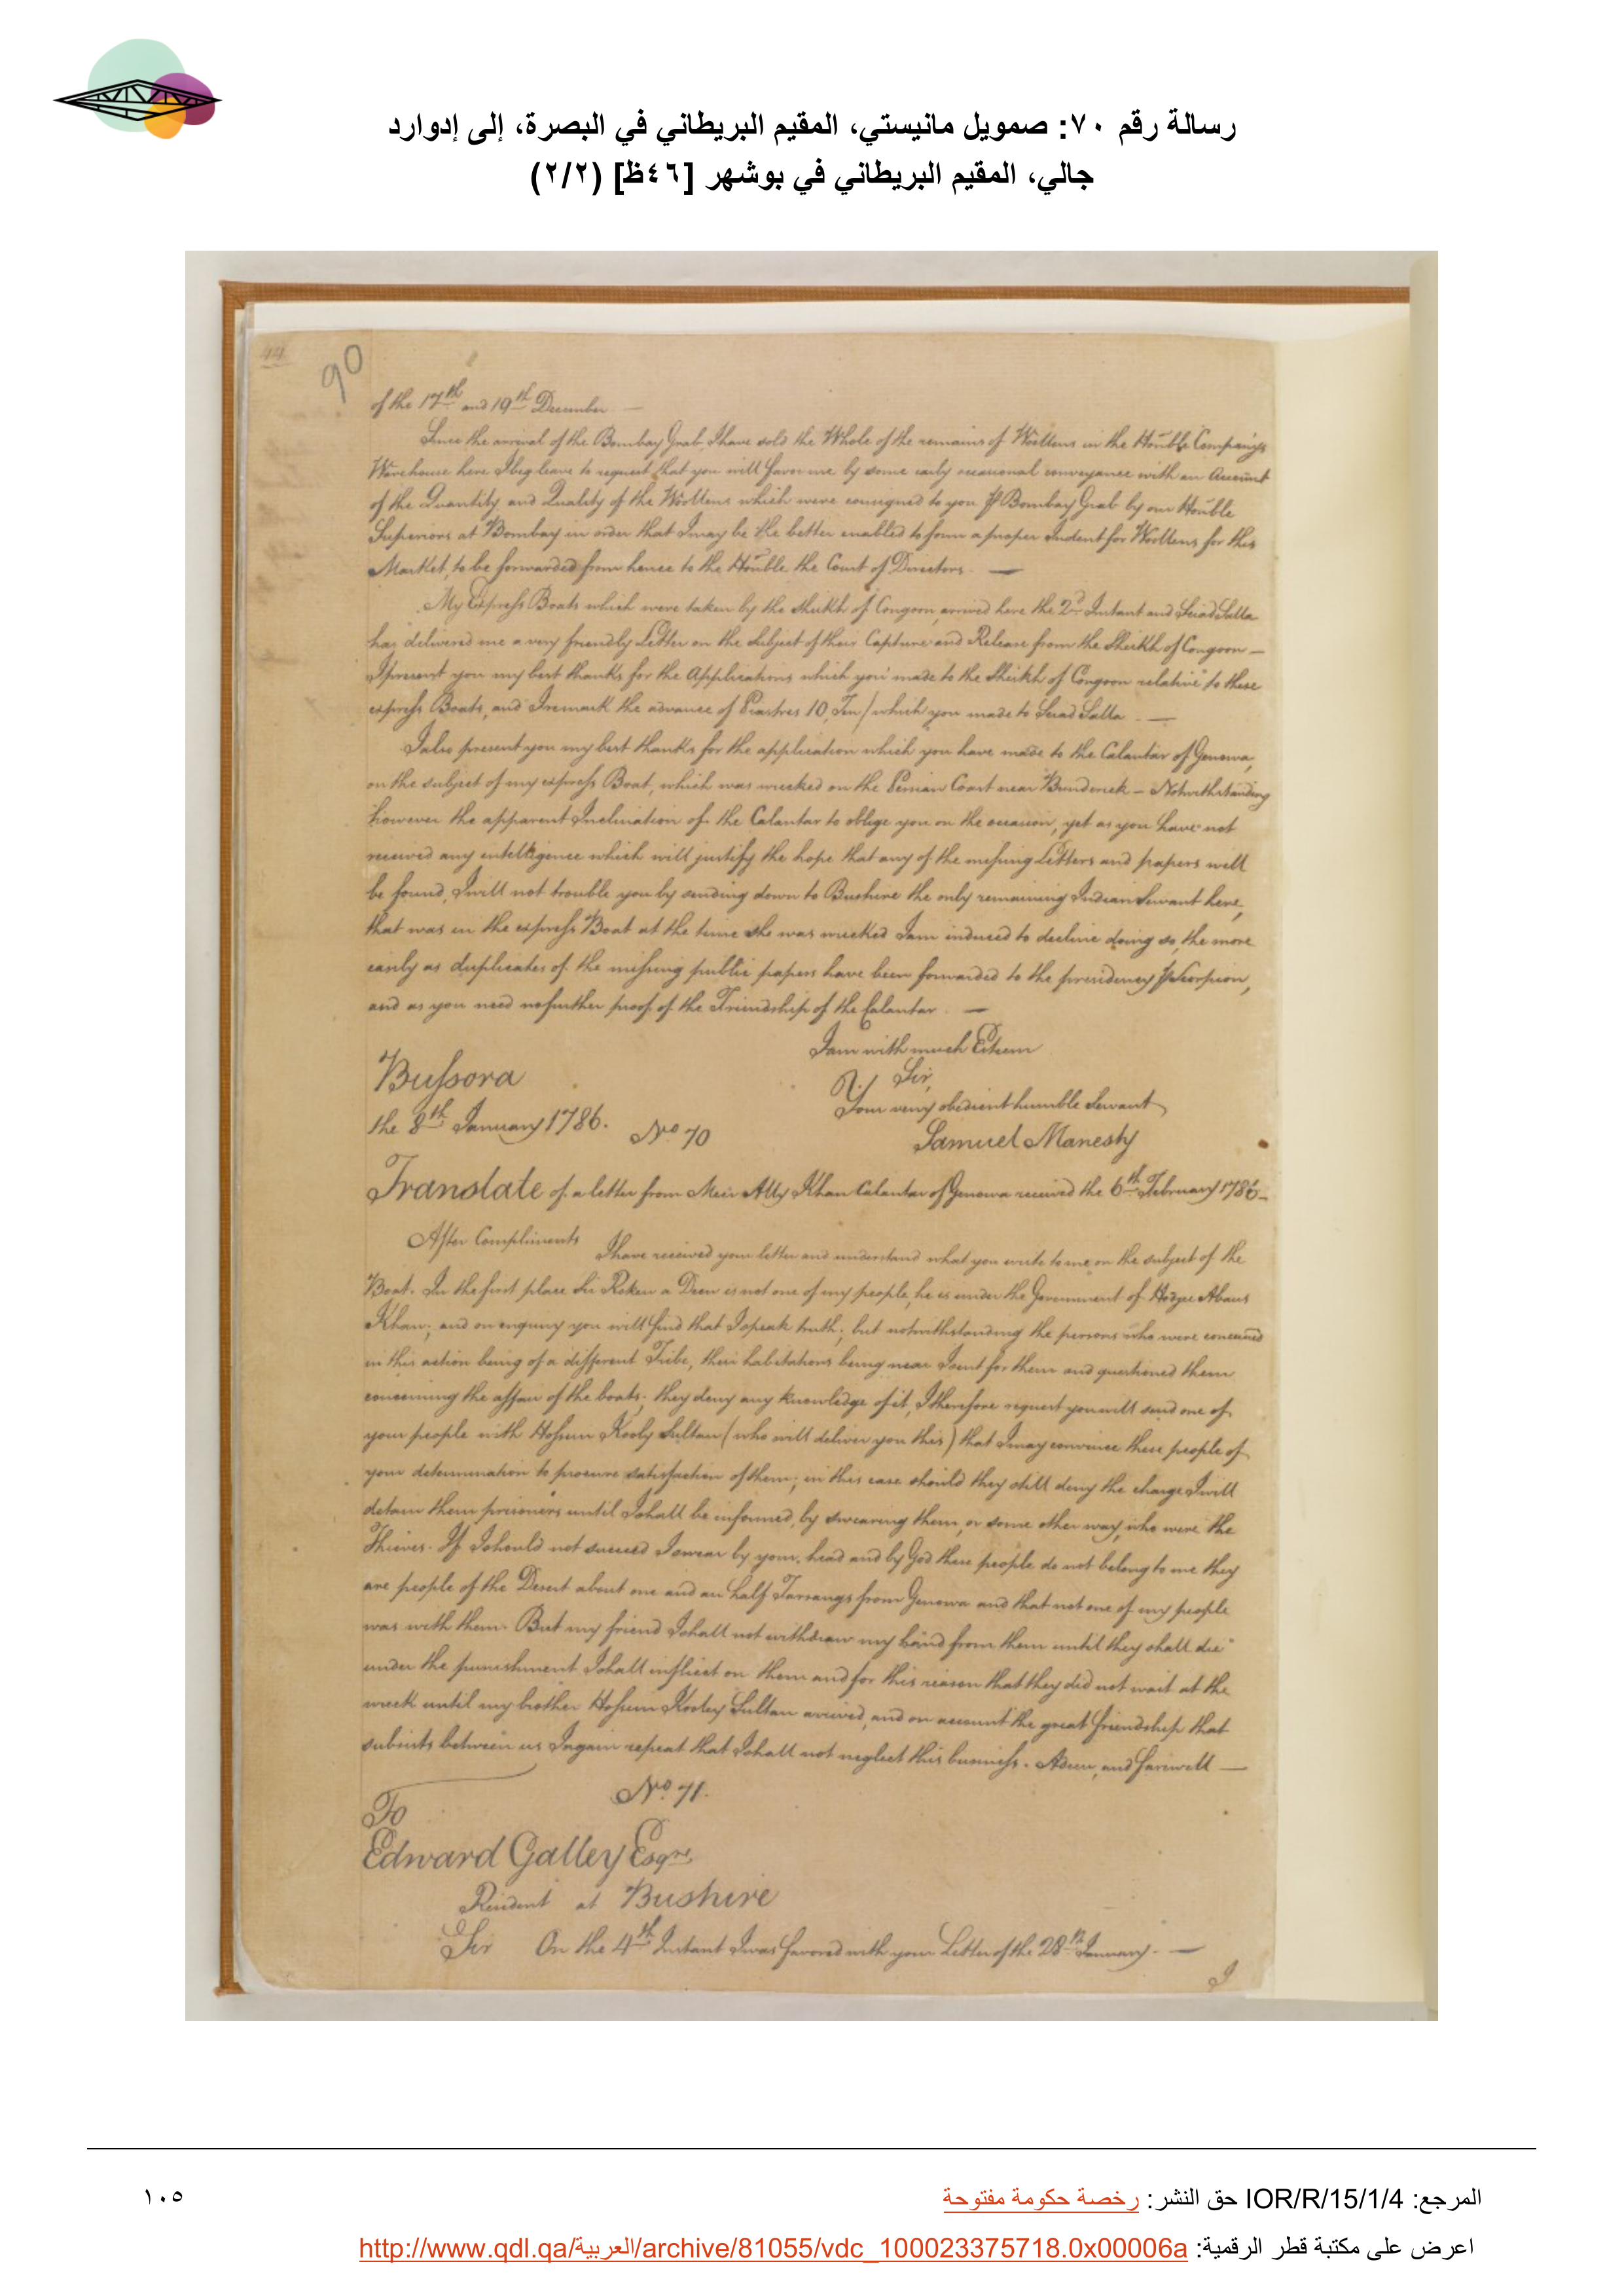 رسالة رقم ٧٠: صمويل مانيستي، المقيم البريطاني في البصرة، إلى إدوارد
جالي، المقيم البريطاني في بوشهر [٤٦ظ] (٢/٢)
44
90
of the 17th and 19th December —
Since the arrival of the Bombay Grab, I have sold the Whole of the remains of Woollens in the Honble Companys
Warehouse here I beg leave to request that you will favor me by some early occasional conveyance with an Account
of the Quantity and Quality of the Woollens which were consigned to you P Bombay Grab by our Honble
Superiors at Bombay in order that I may be the better enabled to form a proper Indent for Woollens for this
Market, to be forwarded from hence to the Honble the Court of Directors. —
My Express Boats which were taken by the Sheikh of Congoon, arrived here the 2d Instant and Seiad Salla
has delivered me a very friendly Letter on the Subject of their Capture and Release from the Sheikh of Congoon —
I present you my best thanks for the Applications which you made to the Sheikh of Congoon relative to these
express Boats, and I remark the advance of Piastres 10, Ten/ which you made to Seiad Salla. —
I also present you my best thanks for the application which you have made to the Calantar of Genowa,
on the subject of my express Boat, which was wrecked on the Persian Coast near Bunderick — Notwithstanding
however the apparent Inclination of the Calantar to oblige you on the occasion, yet as you have not
received any intelligence which will justify the hope that any of the missing Letters and papers will
be found, I will not trouble you by sending down to Bushire the only remaining Indian Servant here,
that was in the express Boat at the time she was wrecked I am induced to decline doing so, the more
easily as duplicates of the missing public papers have been forwarded to the presidency P Scorpion,
and as you need no further proof of the Friendship of the Calantar. —
I am with much Esteem
Sir,
Your very obedient humble Servant
Bussora
the 8th January 1786.
No 70
Samuel Manesty
Translate of a letter from Meir Ally Khan Calantar of Genowa received the 6th February 1786 —
After Compliments I have received your letter and understand what you write to me on the subject of the
Boat. In the first place Sir Roken a Deen is not one of my people, he is under the Government of Hodjee Abaus
Khan; and on enquiry you will find that I speak truth; but notwithstanding the persons who were concerned
in this action being of a different Tribe, their habitations being near I sent for them and questioned them
concerning the affair of the boats; they deny any knowledge of it, I therefore request you will send one of
your people with Hossein Kooly Sultan (who will deliver you this) that I may convince these people of
your determination to procure satisfaction of them; in this case should they still deny the charge I will
detain them prisoners until I shall be informed, by swearing them, or some other way, who were the
Thieves. If I should not succeed I swear by your head and by God these people do not belong to me they
are people of the Desert about one and an half Farsangs from Genowa and that not one of my people
was with them. But my friend I shall not withdraw my hand from them until they shall die
under the punishment I shall inflict on them and for this reason that they did not wait at the
wreck until my brother Hossein Kooley Sultan arrived, and on account the great friendship that
subsists between us I again repeat that I shall not neglect this business. Adieu, and farewell —
No 71.
To
Edward Galley Esqre
Resident at Bushire
Sir On the 4th Instant I was favored with your Letter of the 28th January. —
I
المرجع: IOR/R/15/1/4 حق النشر: رخصة حكومة مفتوحة
١٠٥
اعرض على مكتبة قطر الرقمية: http://www.qdl.qa/العربية/archive/81055/vdc_100023375718.0x00006a